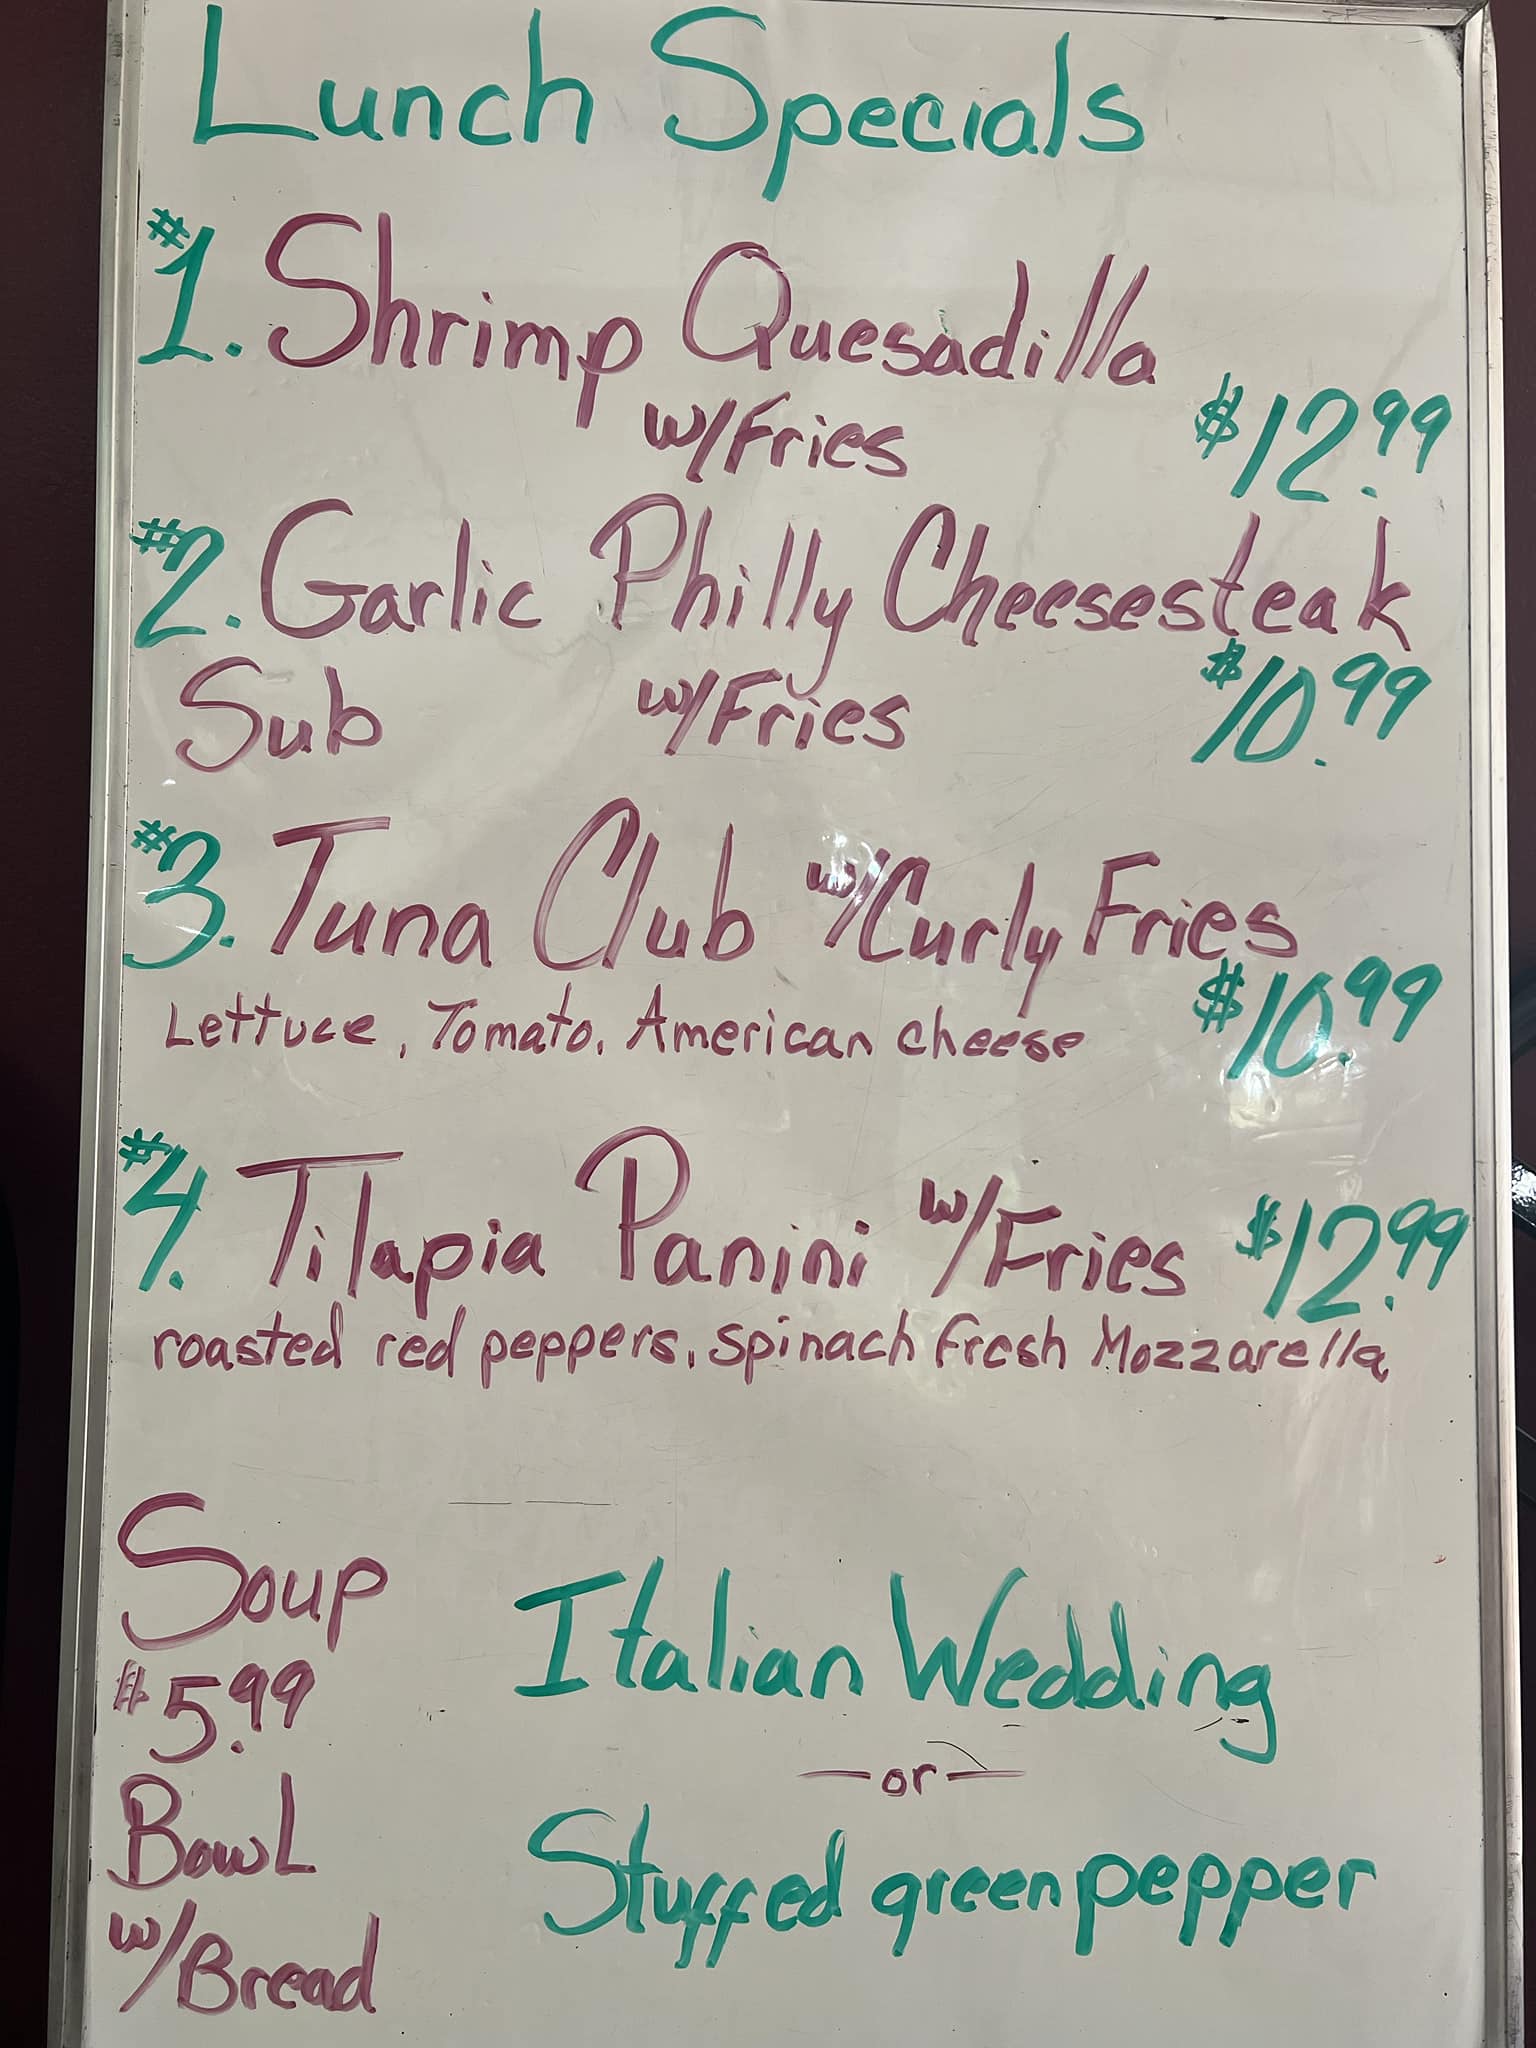 Lunch Specials
#1. Shrimp Quesadilla
w/Fries $12.99
#2. Garlic Philly Cheesesteak
Sub w/Fries $10.99
#3. Tuna Club w/Curly Fries
Lettuce, Tomato, American cheese $10.99
#4. Tilapia Panini w/Fries $12.99
roasted red peppers, spinach fresh Mozzarella
Soup
$5.99
Bowl
w/Bread
Italian Wedding
-or-
Stuffed green pepper